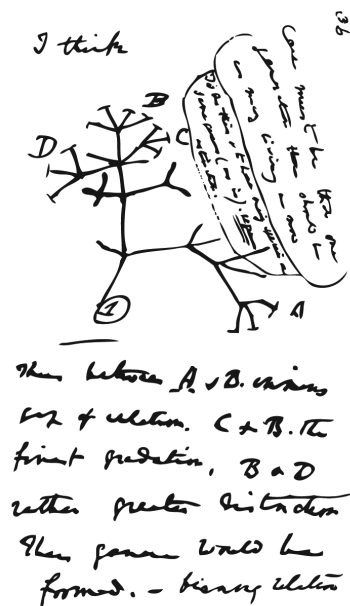 36
I think
Case must be that one
generation then should be
as many living as now
To do this & to have many species in
same genus (as is). requires
extinction.
B
D
C
1
A
Thus between A & B. immense
gap of relation. C & B. the
finest gradation, B & D
rather greater distinction
Thus genera would be
formed. — bearing relation